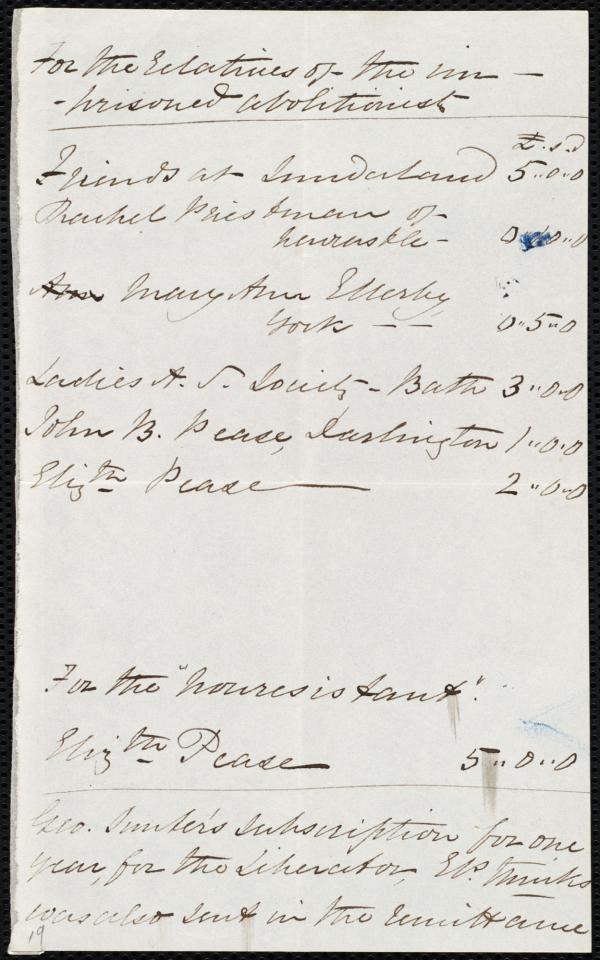 For the Relatives of the im-
-prisoned abolitionists
£. s. d
Friends at Sunderland 5"0"0
Rachel Priestman of
Newcastle - 0"10"0
Ann Mary Ann Ellerby
York - - 0"5"0
Ladies A. S. Society - Bath 3"0"0
John B. Pease, Darlington 1"0"0
Elizth Pease 2"0"0
For the "Nonresistant".
Elizth Pease 5"0"0
Geo. subscription for one
year, for the Liberator, thinks
was also sent in the remittance
19